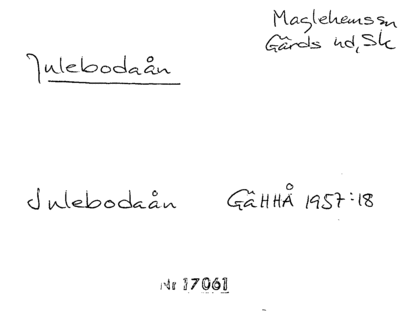 Maglehems sn
Gärds hd, Sk
Julebodaån
Julebodaån GäHHÅ 1957:18
Nr 17061